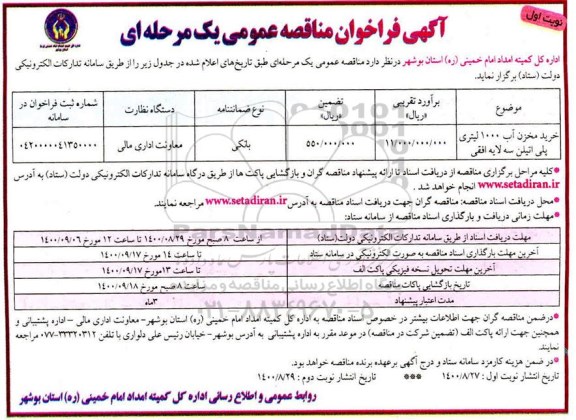 نوبت اول
آگهی فراخوان مناقصه عمومی یک مرحله ای
اداره کل کمیته امداد امام خمینی (ره) استان بوشهر درنظر دارد مناقصه عمومی یک مرحله‌ای طبق تاریخ‌های اعلام شده در جدول زیر را از طریق سامانه تدارکات الکترونیکی
دولت (ستاد) برگزار نماید.
موضوع
برآورد تقریبی «ریال»
تضمین «ریال»
نوع ضمانتنامه
دستگاه نظارت
شماره ثبت فراخوان در سامانه
خرید مخزن آب ۱۰۰۰ لیتری پلی اتیلن سه لایه افقی
۱۱/۰۰۰/۰۰۰/۰۰۰
۵۵۰/۰۰۰/۰۰۰
بانکی
معاونت اداری مالی
۰۴۲۰۰۰۰۰۴۱۳۵۰۰۰۰
•کلیه مراحل برگزاری مناقصه از دریافت اسناد تا ارائه پیشنهاد مناقصه گران و بازگشایی پاکت ها از طریق درگاه سامانه تدارکات الکترونیکی دولت (ستاد) به آدرس
www.setadiran.ir انجام خواهد شد .
•محل دریافت اسناد مناقصه: مناقصه گران جهت دریافت اسناد مناقصه به آدرس www.setadiran.ir مراجعه نمایند.
•مهلت زمانی دریافت و بارگذاری اسناد مناقصه از سامانه ستاد:
مهلت دریافت اسناد از طریق سامانه تدارکات الکترونیکی دولت(ستاد)
از ساعت ۸ صبح مورخ ۱۴۰۰/۰۸/۲۹ تا ساعت ۱۲ مورخ ۱۴۰۰/۰۹/۰۶
آخرین مهلت بارگذاری اسناد مناقصه به صورت الکترونیکی در سامانه ستاد
تا ساعت ۱۴ مورخ ۱۴۰۰/۰۹/۱۷
آخرین مهلت تحویل نسخه فیزیکی پاکت الف
تا ساعت ۱۳مورخ ۱۴۰۰/۰۹/۱۷
تاریخ بازگشایی پاکات مناقصه
ساعت ۸ صبح مورخ ۱۴۰۰/۰۹/۱۸
مدت اعتبار پیشنهاد
۳ماه
•درضمن مناقصه گران جهت اطلاعات بیشتر در خصوص اسناد مناقصه به اداره کل کمیته امداد امام خمینی (ره) استان بوشهر- معاونت اداری مالی – اداره پشتیبانی و
همچنین جهت ارائه پاکت الف (تضمین شرکت در مناقصه) در موعد مقرر به اداره پشتیبانی به آدرس بوشهر- خیابان رئیس علی دلواری با تلفن ۳۳۳۲۰۳۱۲-۰۷۷ مراجعه
نمایند.
•در ضمن هزینه کارمزد سامانه ستاد و درج آگهی برعهده برنده مناقصه خواهد بود.
تاریخ انتشار نوبت اول : ۱۴۰۰/۸/۲۷ *** تاریخ انتشار نوبت دوم : ۱۴۰۰/۸/۲۹
روابط عمومی و اطلاع رسانی اداره کل کمیته امداد امام خمینی (ره) استان بوشهر